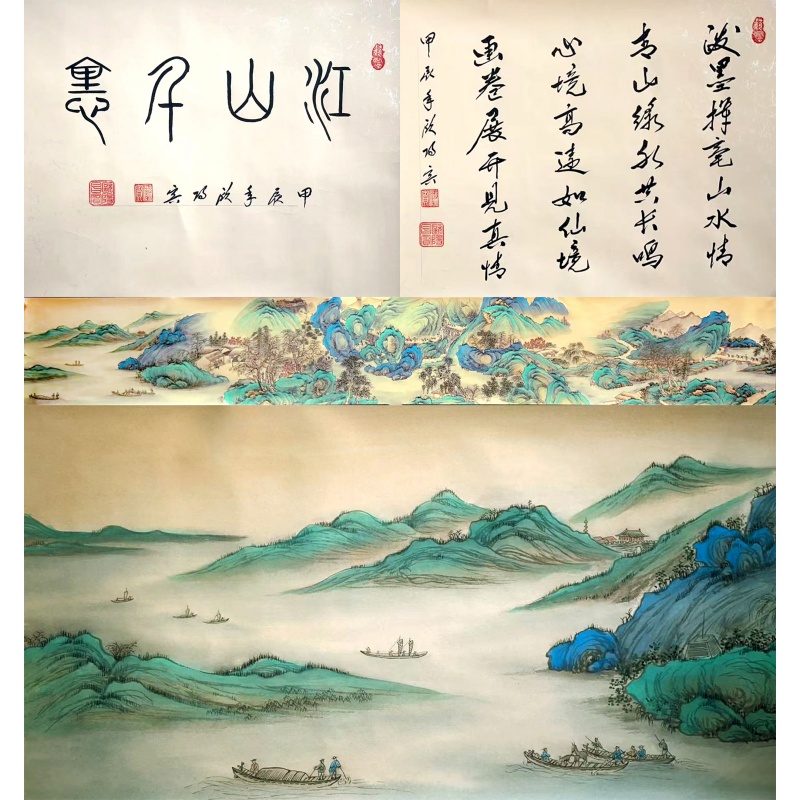 江山千裏
甲辰年
泼墨挥毫山水情
青山绿水共长鸣
心境高远如仙境
画卷展开见真情
甲辰年